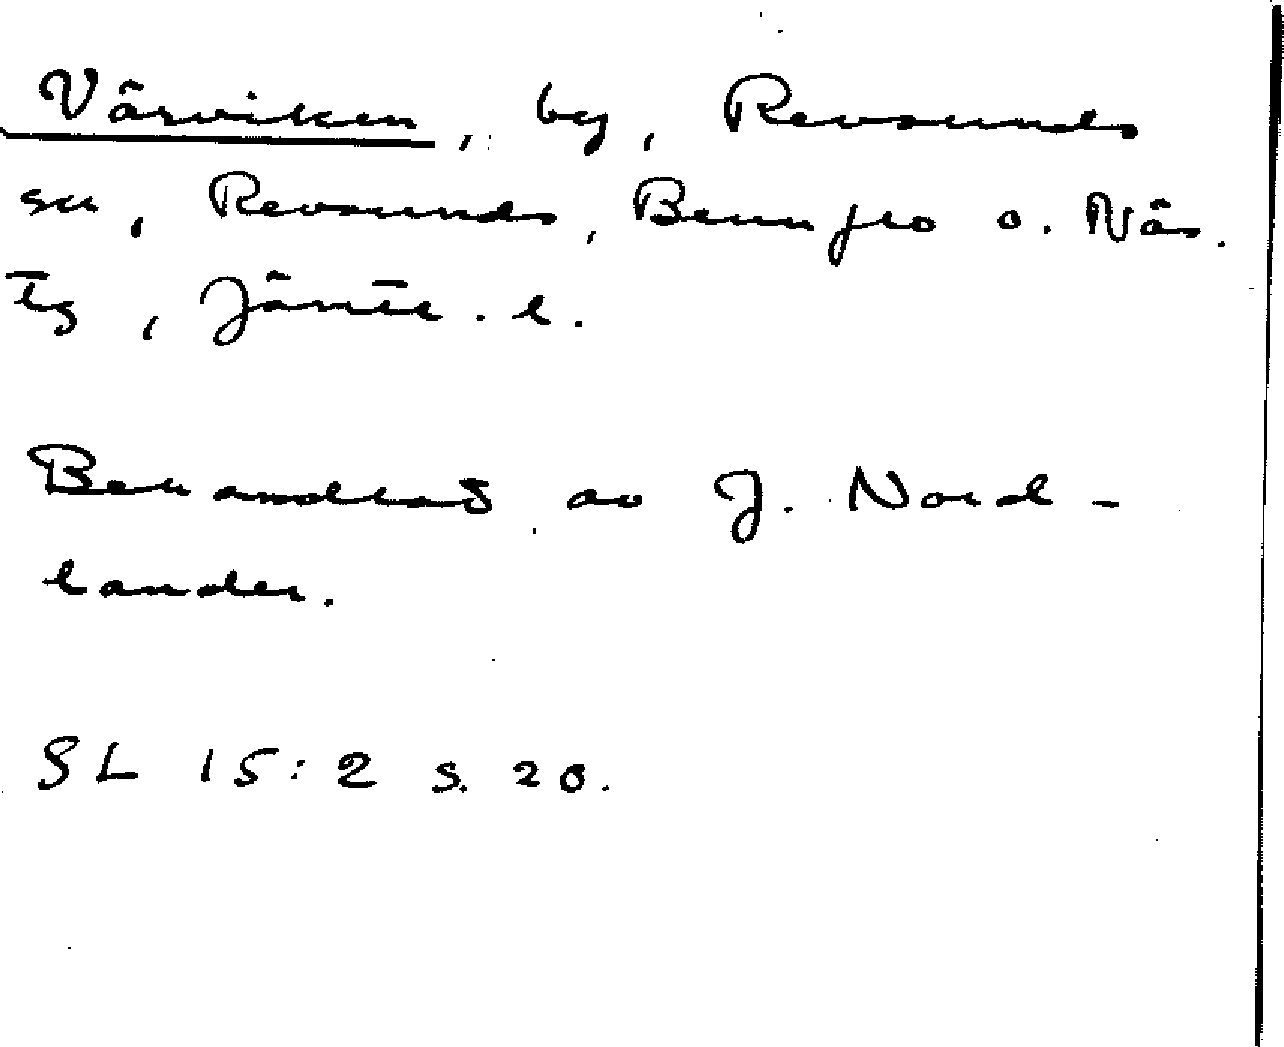 Värviken, by, Revsunds
sn, Revsunds, Brunflo o. Näs.
tg, Jämtl. l.
Behandlat av J. Nord-
lander.
SL 15:2 s. 20.